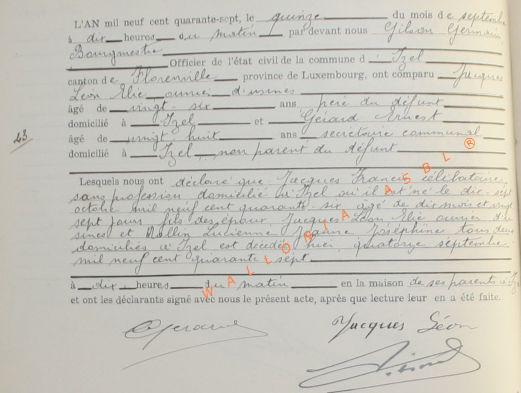 L'AN mil neuf cent quarante-sept, le quinze du mois de septembre
à dix heures du matin par devant nous Gilson Germain,
Bourgmestre
Officier de l'état civil de la commune d'Izel
canton de Florenville province de Luxembourg, ont comparu Jacques
Léon Elie ouvrier d'usines
âgé de vingt-six ans père du défunt
domicilié à Izel et Gérard Ernest
âgé de vingt huit ans secrétaire communal
domicilié à Izel, non parent du défunt
43
Lesquels nous ont déclaré que Jacques Francis célibataire,
sans profession domicilié à Izel où il est né le dix-sept
octobre mil neuf cent quarante-six, âgé de dix mois et vingt
sept jours, fils des époux Jacques Léon Elie ouvrier d'u
sines et Rollin Lucienne Jeanne Joséphine tous deux
domiciliés à Izel est décédé hier, quatorze septembre
mil neuf cent quarante sept
à dix heures du matin en la maison de ses parents à Izel
et ont les déclarants signé avec nous le présent acte, après que lecture leur en a été faite.
Gérard Jacques Léon
WALLOBIA ASBL ®